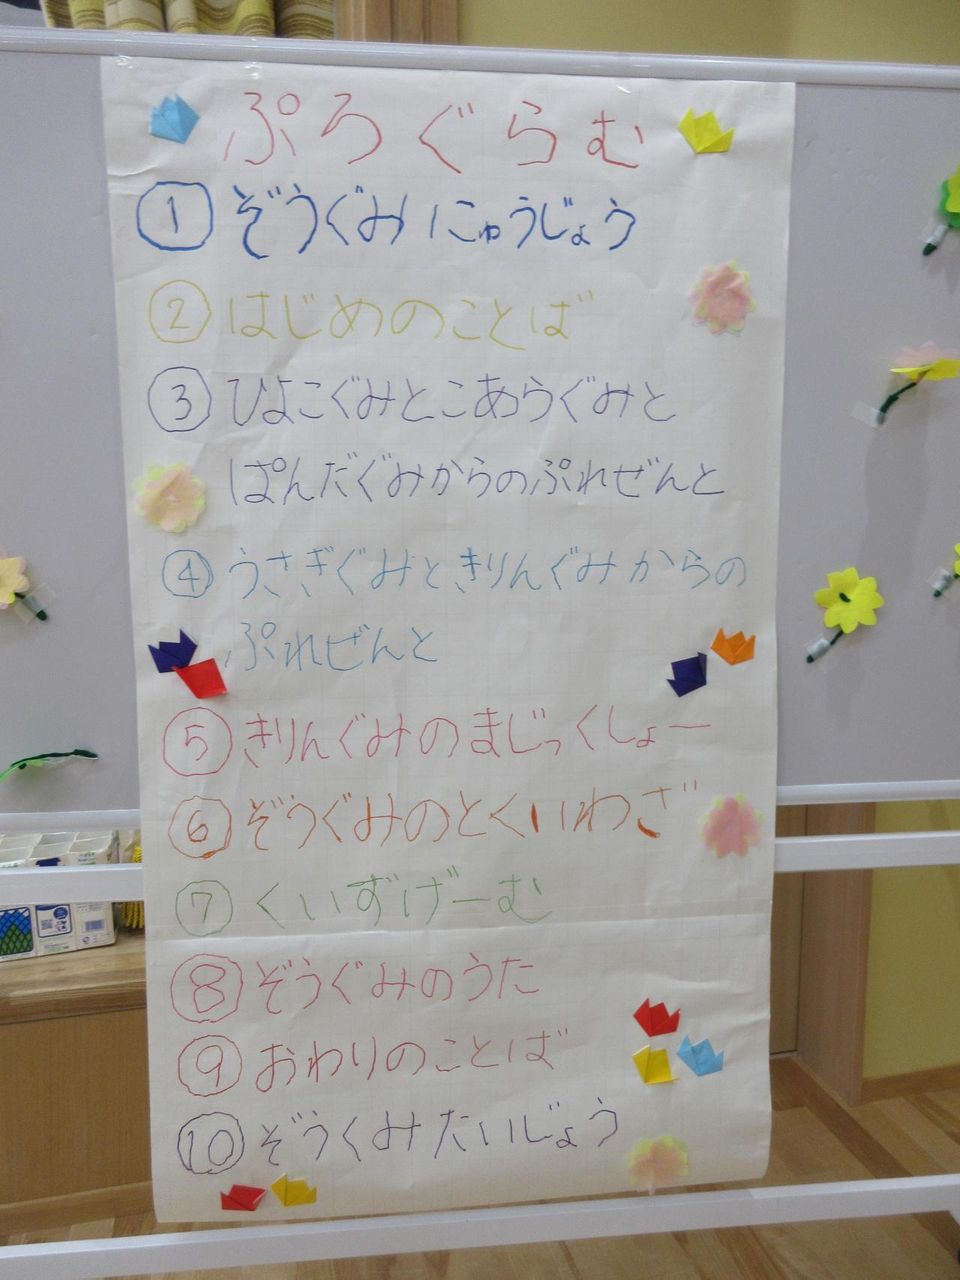 ぷろぐらむ
① ぞうぐみ にゅうじょう
② はじめのことば
③ ひよこぐみとこあらぐみと
ぱんだぐみからのぷれぜんと
④ うさぎぐみときりんぐみからの
ぷれぜんと
⑤ きりんぐみのまじっくしょー
⑥ ぞうぐみのとくいわざ
⑦ くいずげーむ
⑧ ぞうぐみのうた
⑨ おわりのことば
⑩ ぞうくみたいじょう